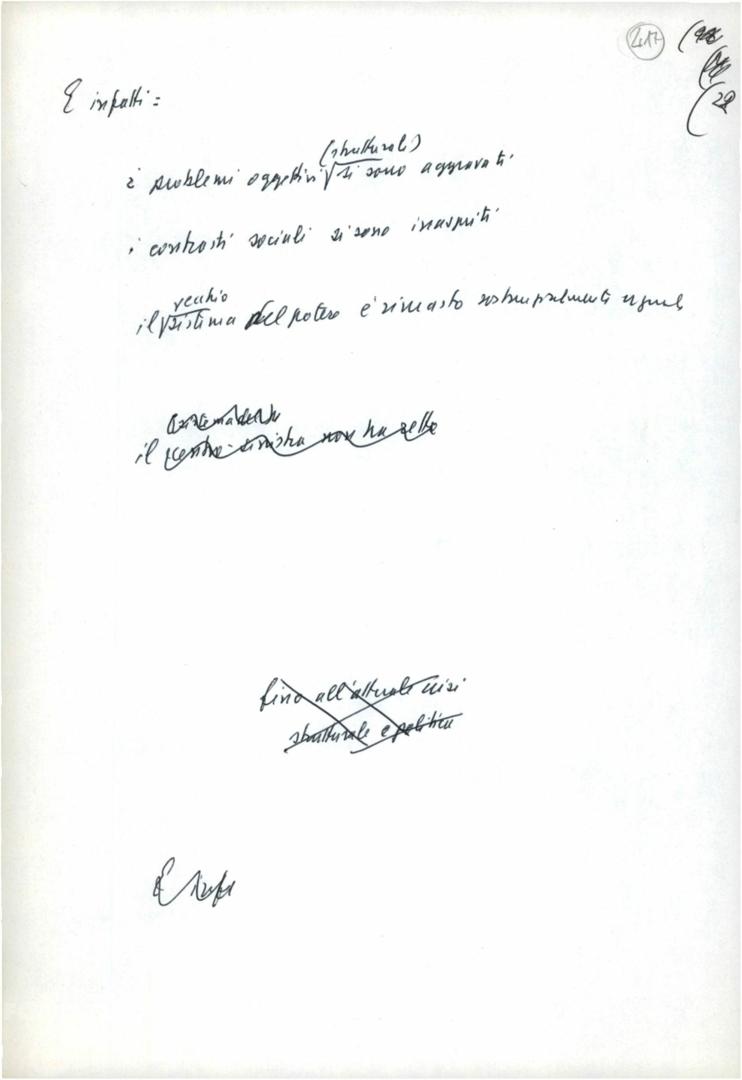 217
(22
E infatti:
(strutturali)
i problemi oggettivi si sono aggravati
i contrasti sociali si sono inaspriti
vecchio
il sistema del potere è rimasto sostanzialmente uguale
il centro-sinistra non ha retto
fino all'attuale crisi
strutturale e politica
E infa